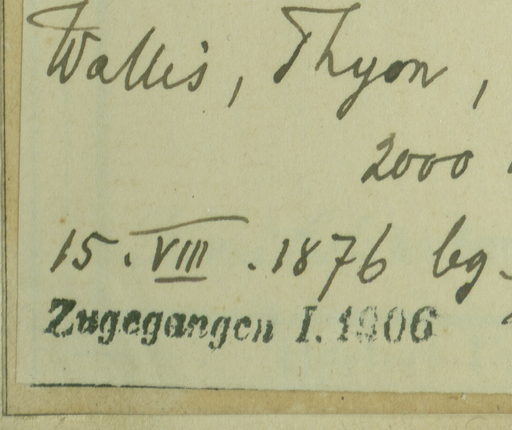 Wallis, Thyon,
2000
15. VIII. 1876 lg.
Zugegangen I. 1906